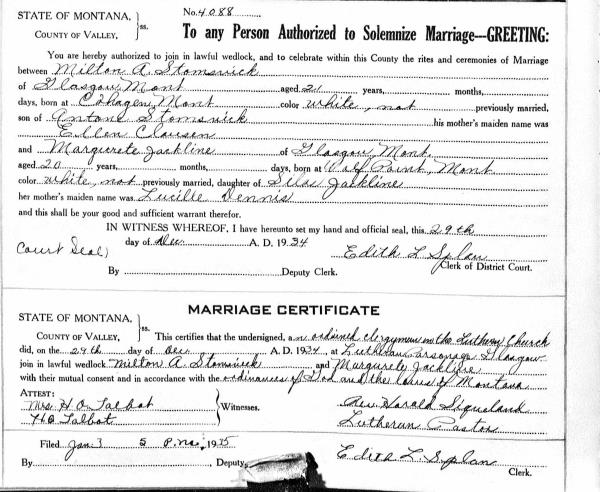 STATE OF MONTANA, No. 4088
COUNTY OF VALLEY, ss. To any Person Authorized to Solemnize Marriage—GREETING:
You are hereby authorized to join in lawful wedlock, and to celebrate within this County the rites and ceremonies of Marriage
between Milton A. Stomsvick
of Glasgow, Mont aged 21 years, months,
days, born at Cohagen, Mont color white, not previously married,
son of Antone Stomsvick his mother's maiden name was
Ellen Clausen
and Margurete Jackline of Glasgow, Mont.
aged 20 years, months, days, born at Wolf Point, Mont
color white, not previously married, daughter of Silas Jackline
her mother's maiden name was Lucille Dennis
and this shall be your good and sufficient warrant therefor.
IN WITNESS WHEREOF, I have hereunto set my hand and official seal, this 29th
day of Dec A. D. 1934
Court Seal) Edith L. Splan
Clerk of District Court.
By Deputy Clerk.
MARRIAGE CERTIFICATE
STATE OF MONTANA,
COUNTY OF VALLEY, ss. This certifies that the undersigned, an ordained clergyman in the Luthern Church
did, on the 29th day of Dec A. D. 1934, at Lutheran Parsonage Glasgow
join in lawful wedlock Milton A. Stomsvick and Margurete Jackline
with their mutual consent and in accordance with the ordinances of God and the laws of Montana
ATTEST:
Mrs H O Talbot Witnesses. Rev. Harald Siqueland
H O Talbot Lutherun Pastor
Filed Jan. 3 5 P.M., 1935
By Deputy Edith L. Splan
Clerk.